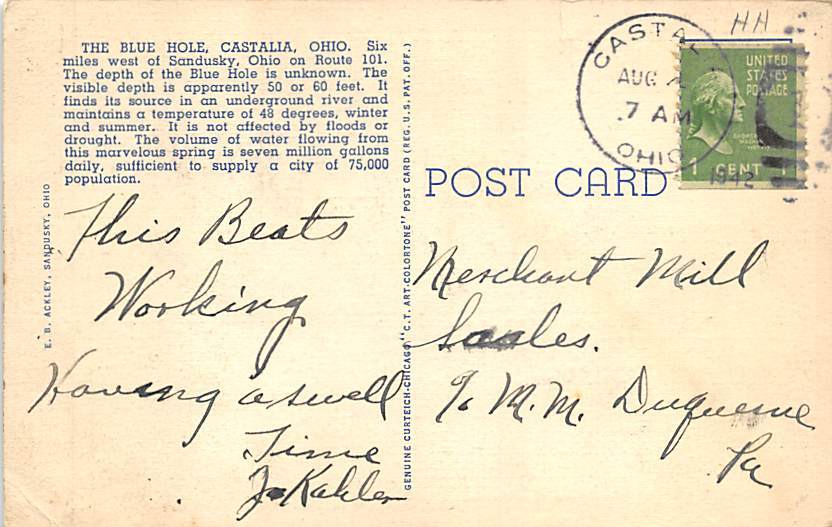 THE BLUE HOLE, CASTALIA, OHIO. Six
miles west of Sandusky, Ohio on Route 101.
The depth of the Blue Hole is unknown. The
visible depth is apparently 50 or 60 feet. It
finds its source in an underground river and
maintains a temperature of 48 degrees, winter
and summer. It is not affected by floods or
drought. The volume of water flowing from
this marvelous spring is seven million gallons
daily, sufficient to supply a city of 75,000
population.
E. B. ACKLEY, SANDUSKY, OHIO
This Beats
Working
Having a swell
Time
J. Kahler
GENUINE CURTEICH-CHICAGO "C.T. ART-COLORTONE" POST CARD (REG. U.S. PAT. OFF.)
HH
AUG
7 AM
OHIO
1942
UNITED
STATES
POSTAGE
1 CENT 1
POST CARD
Merchant Mill
Scales.
℅ M.M. Duquesne
Pa